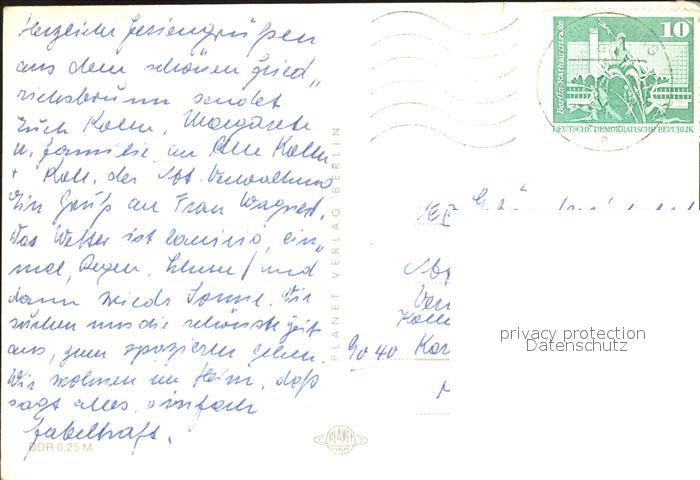 Herzliche Feriengrüßen
aus dem schönen Fried„
richsbrunn sendet
Euch Kolln. Margarete
u. Familie an alle Kolln
+ Koll. der Abt. Verwaltung
Ein Gruß an Frau Wagner.
Das Wetter ist launig, ein„
mal, Regen, und
dann wieder Sonne. Wir
suchen uns die schönste Zeit
aus, zum spazieren gehen.
Wir wohnen im Heim, daß
sagt alles, einfach
fabelhaft.
DDR 0,25 M
PLANET VERLAG BERLIN
PLANET
10
Berlin-Rathausstraße
DEUTSCHE DEMOKRATISCHE REPUBLIK
VEB
Abt
Ver
Kolle
9040 Kar
privacy protection
Datenschutz